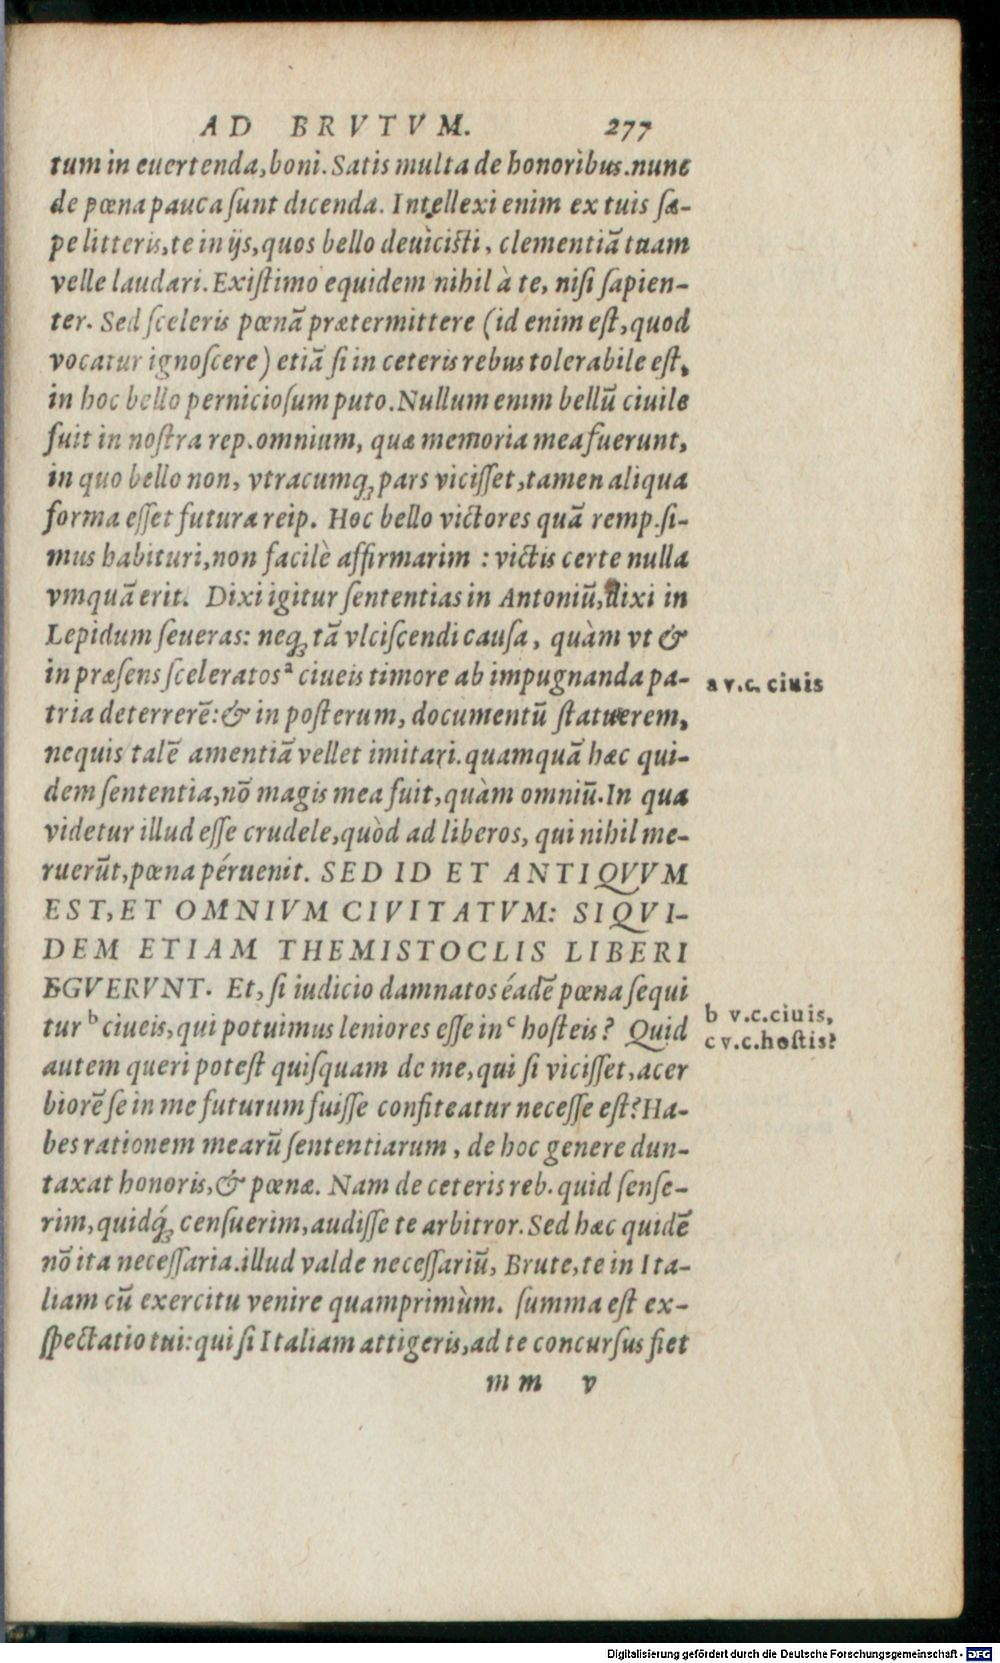 AD BRVTVM. 277
tum in euertenda, boni. Satis multa de honoribus. nunc
de pœna pauca sunt dicenda. Intellexi enim ex tuis sæ-
pe litteris, te in ijs, quos bello deuicisti, clementiā tuam
velle laudari. Existimo equidem nihil à te, nisi sapien-
ter. Sed sceleris pœnā prætermittere (id enim est, quod
vocatur ignoscere) etiā si in ceteris rebus tolerabile est,
in hoc bello perniciosum puto. Nullum enim bellū ciuile
fuit in nostra rep. omnium, quæ memoria mea fuerunt,
in quo bello non, vtracumq; pars vicisset, tamen aliqua
forma esset futura reip. Hoc bello victores quā remp. si-
mus habituri, non facilè affirmarim : victis certe nulla
vmquā erit. Dixi igitur sententias in Antoniū, dixi in
Lepidum seueras: neq; tā vlciscendi causa, quàm vt &
in præsens sceleratos ᵃ ciueis timore ab impugnanda pa-
a v.c. ciuis
tria deterrerē: & in posterum, documentū statuerem,
nequis talē amentiā vellet imitari. quamquā hæc qui-
dem sententia, nō magis mea fuit, quàm omniū. In qua
videtur illud esse crudele, quòd ad liberos, qui nihil me-
ruerūt, pœna péruenit. SED ID ET ANTIQVVM
EST, ET OMNIVM CIVITATVM: SIQVI-
DEM ETIAM THEMISTOCLIS LIBERI
EGVERVNT. Et, si iudicio damnatos éadē pœna sequi
tur ᵇ ciueis, qui potuimus leniores esse in ᶜ hosteis? Quid
b v.c. ciuis,
c v.c. hostis?
autem queri potest quisquam de me, qui si vicisset, acer
biorē se in me futurum fuisse confiteatur necesse est? Ha-
bes rationem mearū sententiarum, de hoc genere dun-
taxat honoris, & pœnæ. Nam de ceteris reb. quid sense-
rim, quidq́; censuerim, audisse te arbitror. Sed hæc quidē
nō ita necessaria. illud valde necessariū, Brute, te in Ita-
liam cū exercitu venire quamprimùm. summa est ex-
spectatio tui: qui si Italiam attigeris, ad te concursus fiet
mm v
Digitalisierung gefördert durch die Deutsche Forschungsgemeinschaft - DFG